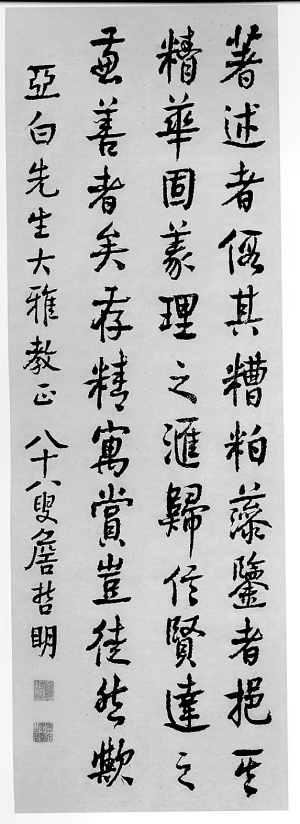 著述者假其糟粕藻鑒者挹其
精華固義理之滙歸信賢達之
兼善者矣存精寓賞豈徒然歟
亞白先生大雅教正 八十八叟詹哲明